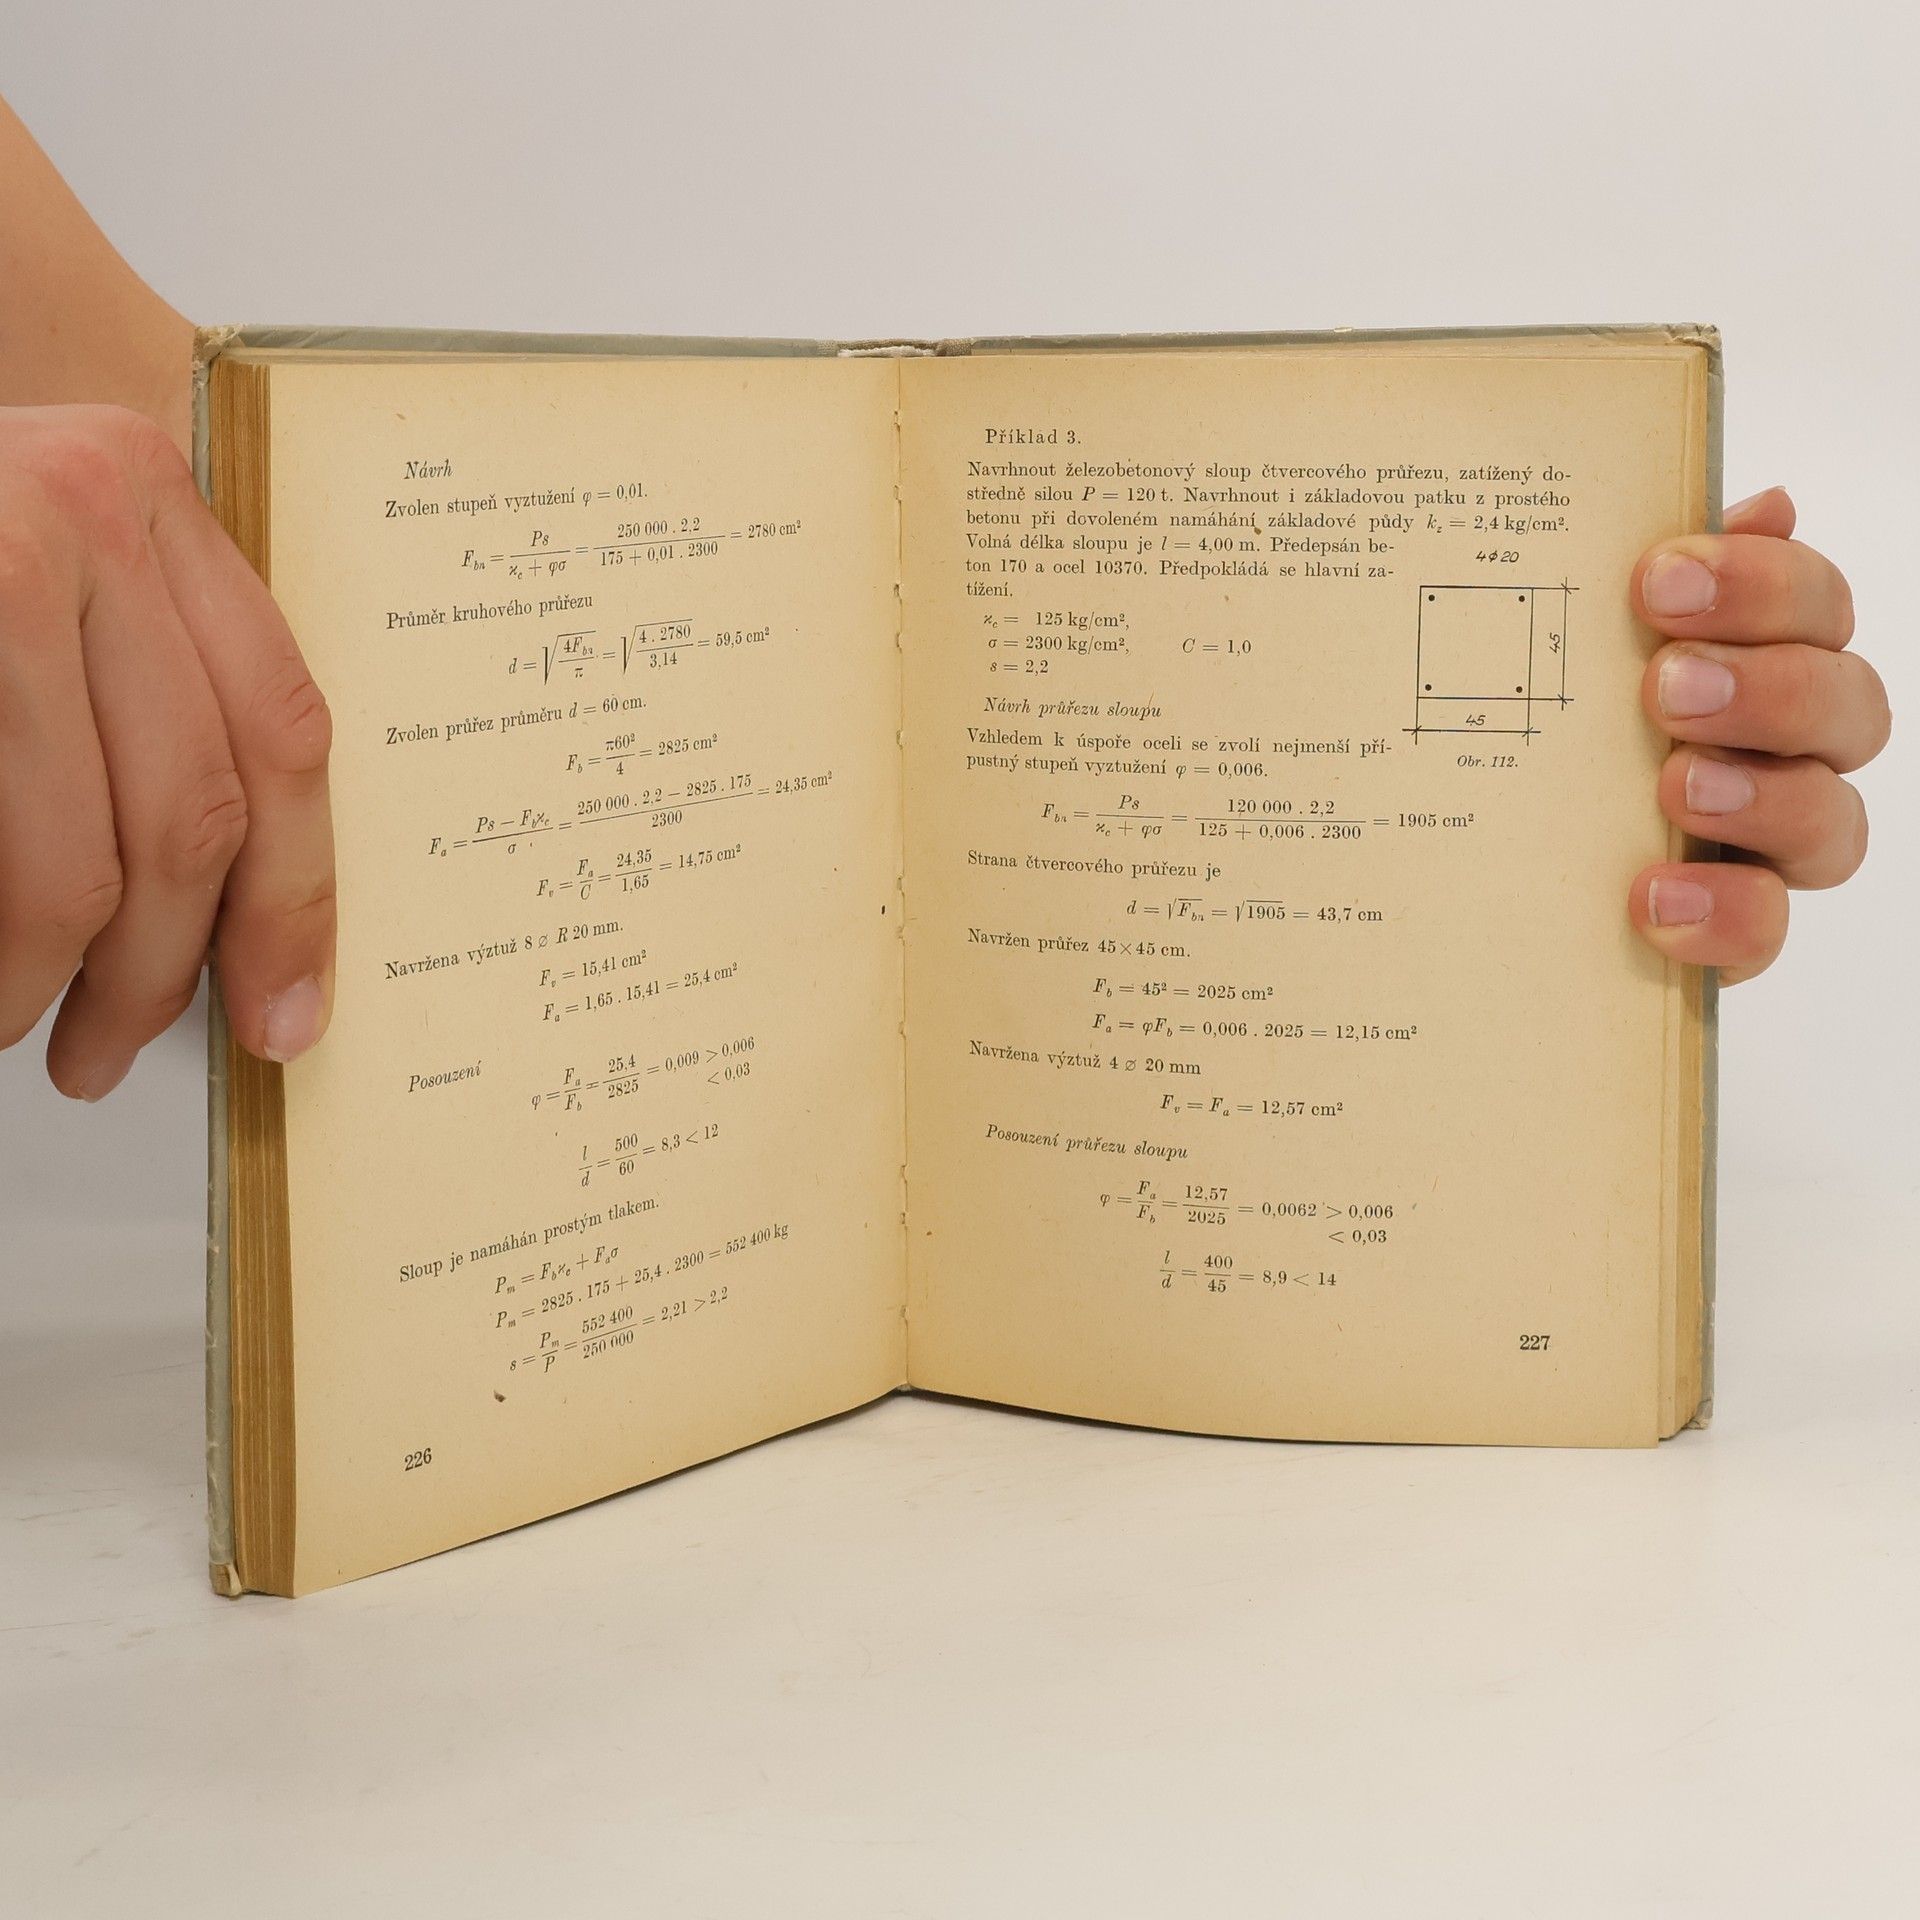 Návrh
Zvolen stupeň vyztužení φ = 0,01.
F_bn = Ps / (ϰ_c + φσ) = 250 000 . 2,2 / (175 + 0,01 . 2300) = 2780 cm²
Průměr kruhového průřezu
d = √(4F_bn / π) = √(4 . 2780 / 3,14) = 59,5 cm²
Zvolen průřez průměru d = 60 cm.
F_b = π60² / 4 = 2825 cm²
F_a = (Ps − F_bϰ_c) / σ = (250 000 . 2,2 − 2825 . 175) / 2300 = 24,35 cm²
F_v = F_a / C = 24,35 / 1,65 = 14,75 cm²
Navržena výztuž 8 ⌀ R 20 mm.
F_v = 15,41 cm²
F_a = 1,65 . 15,41 = 25,4 cm²
Posouzení
φ = F_a / F_b = 25,4 / 2825 = 0,009 > 0,006
< 0,03
l / d = 500 / 60 = 8,3 < 12
Sloup je namáhán prostým tlakem.
P_m = F_bϰ_c + F_aσ
P_m = 2825 . 175 + 25,4 . 2300 = 552 400 kg
s = P_m / P = 552 400 / 250 000 = 2,21 > 2,2
226
Příklad 3.
Navrhnout železobetonový sloup čtvercového průřezu, zatížený do-
středně silou P = 120 t. Navrhnout i základovou patku z prostého
betonu při dovoleném namáhání základové půdy k_z = 2,4 kg/cm².
Volná délka sloupu je l = 4,00 m. Předepsán be-
ton 170 a ocel 10370. Předpokládá se hlavní za-
tížení.
ϰ_c = 125 kg/cm²,
σ = 2300 kg/cm², C = 1,0
s = 2,2
4⌀20
45
45
Obr. 112.
Návrh průřezu sloupu
Vzhledem k úspoře oceli se zvolí nejmenší pří-
pustný stupeň vyztužení φ = 0,006.
F_bn = Ps / (ϰ_c + φσ) = 120 000 . 2,2 / (125 + 0,006 . 2300) = 1905 cm²
Strana čtvercového průřezu je
d = √F_bn = √1905 = 43,7 cm
Navržen průřez 45×45 cm.
F_b = 45² = 2025 cm²
F_a = φF_b = 0,006 . 2025 = 12,15 cm²
Navržena výztuž 4 ⌀ 20 mm
F_v = F_a = 12,57 cm²
Posouzení průřezu sloupu
φ = F_a / F_b = 12,57 / 2025 = 0,0062 > 0,006
< 0,03
l / d = 400 / 45 = 8,9 < 14
227